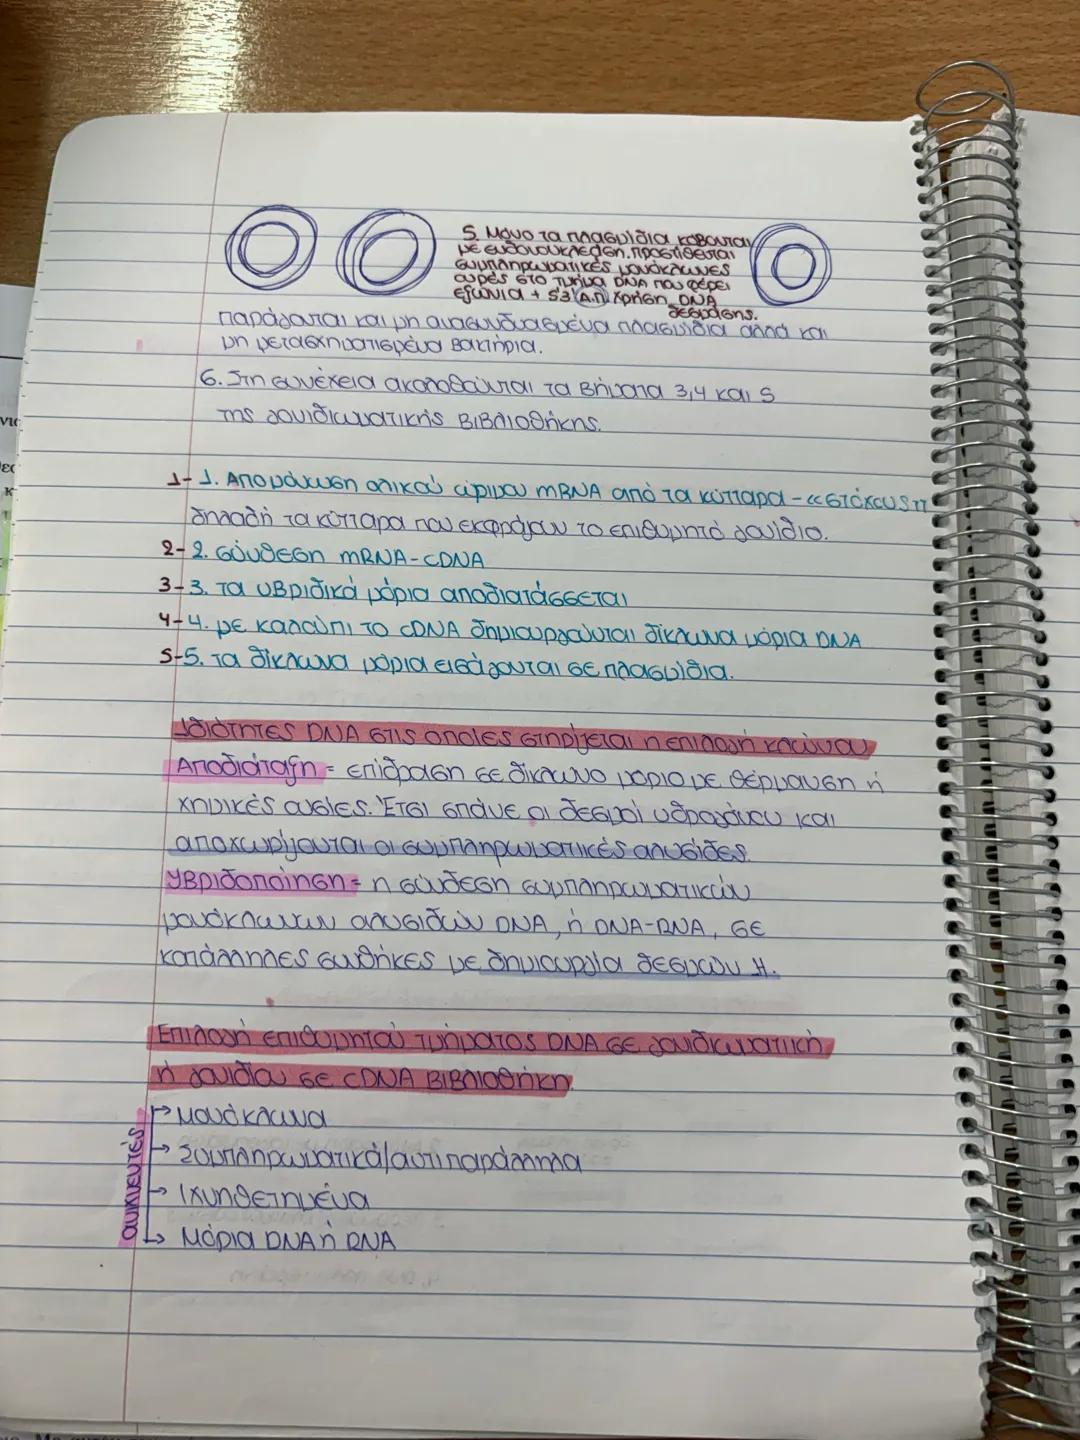 5. Μόνο τα πλασμίδια κόβονται
με ενδονουκλεάση. Προστίθενται
συμπληρωματικές μονόκλωνες
ουρές στο τμήμα DNA που φέρει
εξώνια + 5'3' Α.Π. Χρήση DNA
δεσμάσης.
Παράγονται και μη ανασυνδυασμένα πλασμίδια αλλά και
μη μετασχηματισμένα βακτήρια.
6. Στη συνέχεια ακολοθούνται τα βήματα 3,4 και 5
της γονιδιωματικής βιβλιοθήκης.
1- 1. Απομόνωση ολικού ώριμου mRNA από τα κύτταρα - «στόχους»
δηλαδή τα κύτταρα που εκφράζουν το επιθυμητό γονίδιο.
2- 2. σύνθεση mRNA-cDNA
3- 3. τα υβριδικά μόρια αποδιατάσσεται
4- 4. με καλούπι το cDNA δημιουργούνται δίκλωνα μόρια DNA
5- 5. τα δίκλωνα μόρια εισάγονται σε πλασμίδια.
Ιδιότητες DNA στις οποίες στηρίζεται η επιλογή κλώνου
Αποδιάταξη = επίδραση σε δίκλωνο μόριο με θέρμανση ή
χημικές ουσίες. Έτσι σπάνε οι δεσμοί υδρογόνου και
αποχωρίζονται οι συμπληρωματικές αλυσίδες.
Υβριδοποίηση = η σύνδεση συμπληρωματικών
μονόκλωνων αλυσιδών DNA, ή DNA-RNA, σε
κατάλληλες συνθήκες με δημιουργία δεσμών Η.
Επιλογή επιθυμητού τμήματος DNA σε γονιδιωματική
ή γονιδίου σε cDNA βιβλιοθήκη
ανιχνευτές
→ Μονόκλωνα
→ Συμπληρωματικά/αντιπαράλληλα
→ Ιχνηθετημένα
→ Μόρια DNA ή RNA